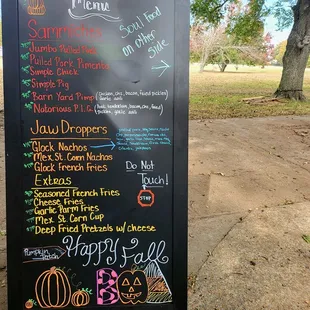 Menu
Sammiches
Soul Food
on other
Side
Jumbo Pulled Pork
Pulled Pork Pimento
Simple Chick
Simple Pig
Barn Yard Pimp
Notorious P.I.G.
Jaw Droppers
Glock Nachos
Mex St. Corn Nachos
Glock French Fries
Do Not
Touch!
STOP
Extras
Seasoned French Fries
Cheese Fries
Garlic Parm Fries
Mex St Corn Cup
Deep Fried Pretzels w/cheese
Pumpkin
Patch
Happy Fall
B